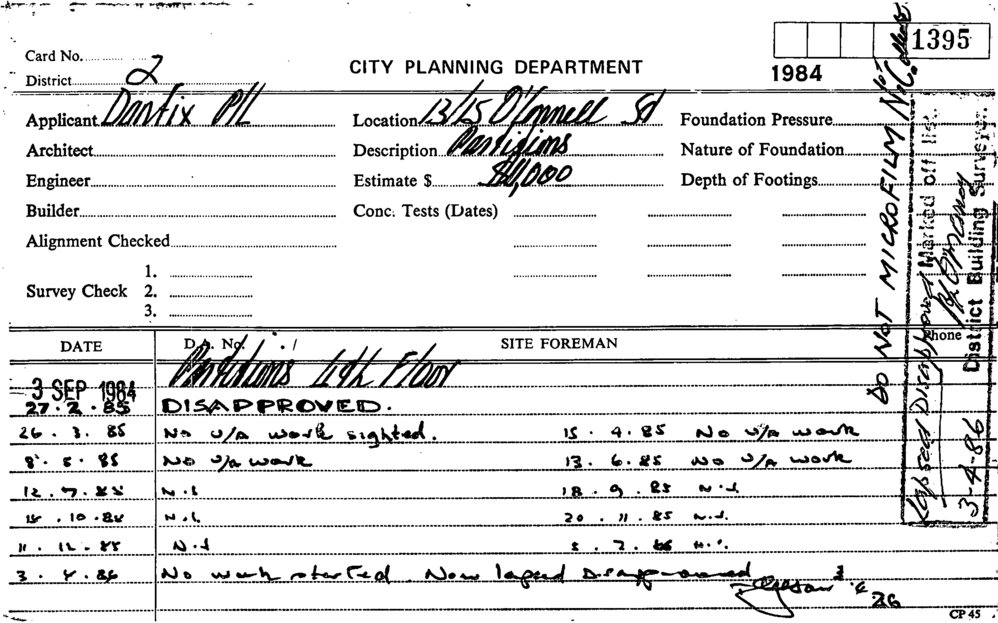 1395
Card No.
District 2
CITY PLANNING DEPARTMENT
1984
Applicant Danfix P/L
Location 13/15 O'Connell St
Foundation Pressure
Architect
Description Partitions
Nature of Foundation
Engineer
Estimate $
Depth of Footings
Builder
Conc. Tests (Dates)
Alignment Checked
Survey Check
1.
2.
3.
DO NOT MICROFILM
Lapsed Disapproved Marked off list.
District Building Surveyor.
3-4-86
DATE
D.A. No. . /
SITE FOREMAN
Phone
3 SEP 1984
Partitions 4th Floor
27.2.85 DISAPPROVED.
26.3.85 No U/A work sighted. 15.4.85 No U/A work
8.5.85 No U/A work 13.6.85 No U/A work
12.7.85 N.S 18.9.85 N.S.
15.10.85 N.S. 20.11.85 N.S.
11.12.85 N.S
3.4.86 No work started. Now lapsed Disapproved
CP 45